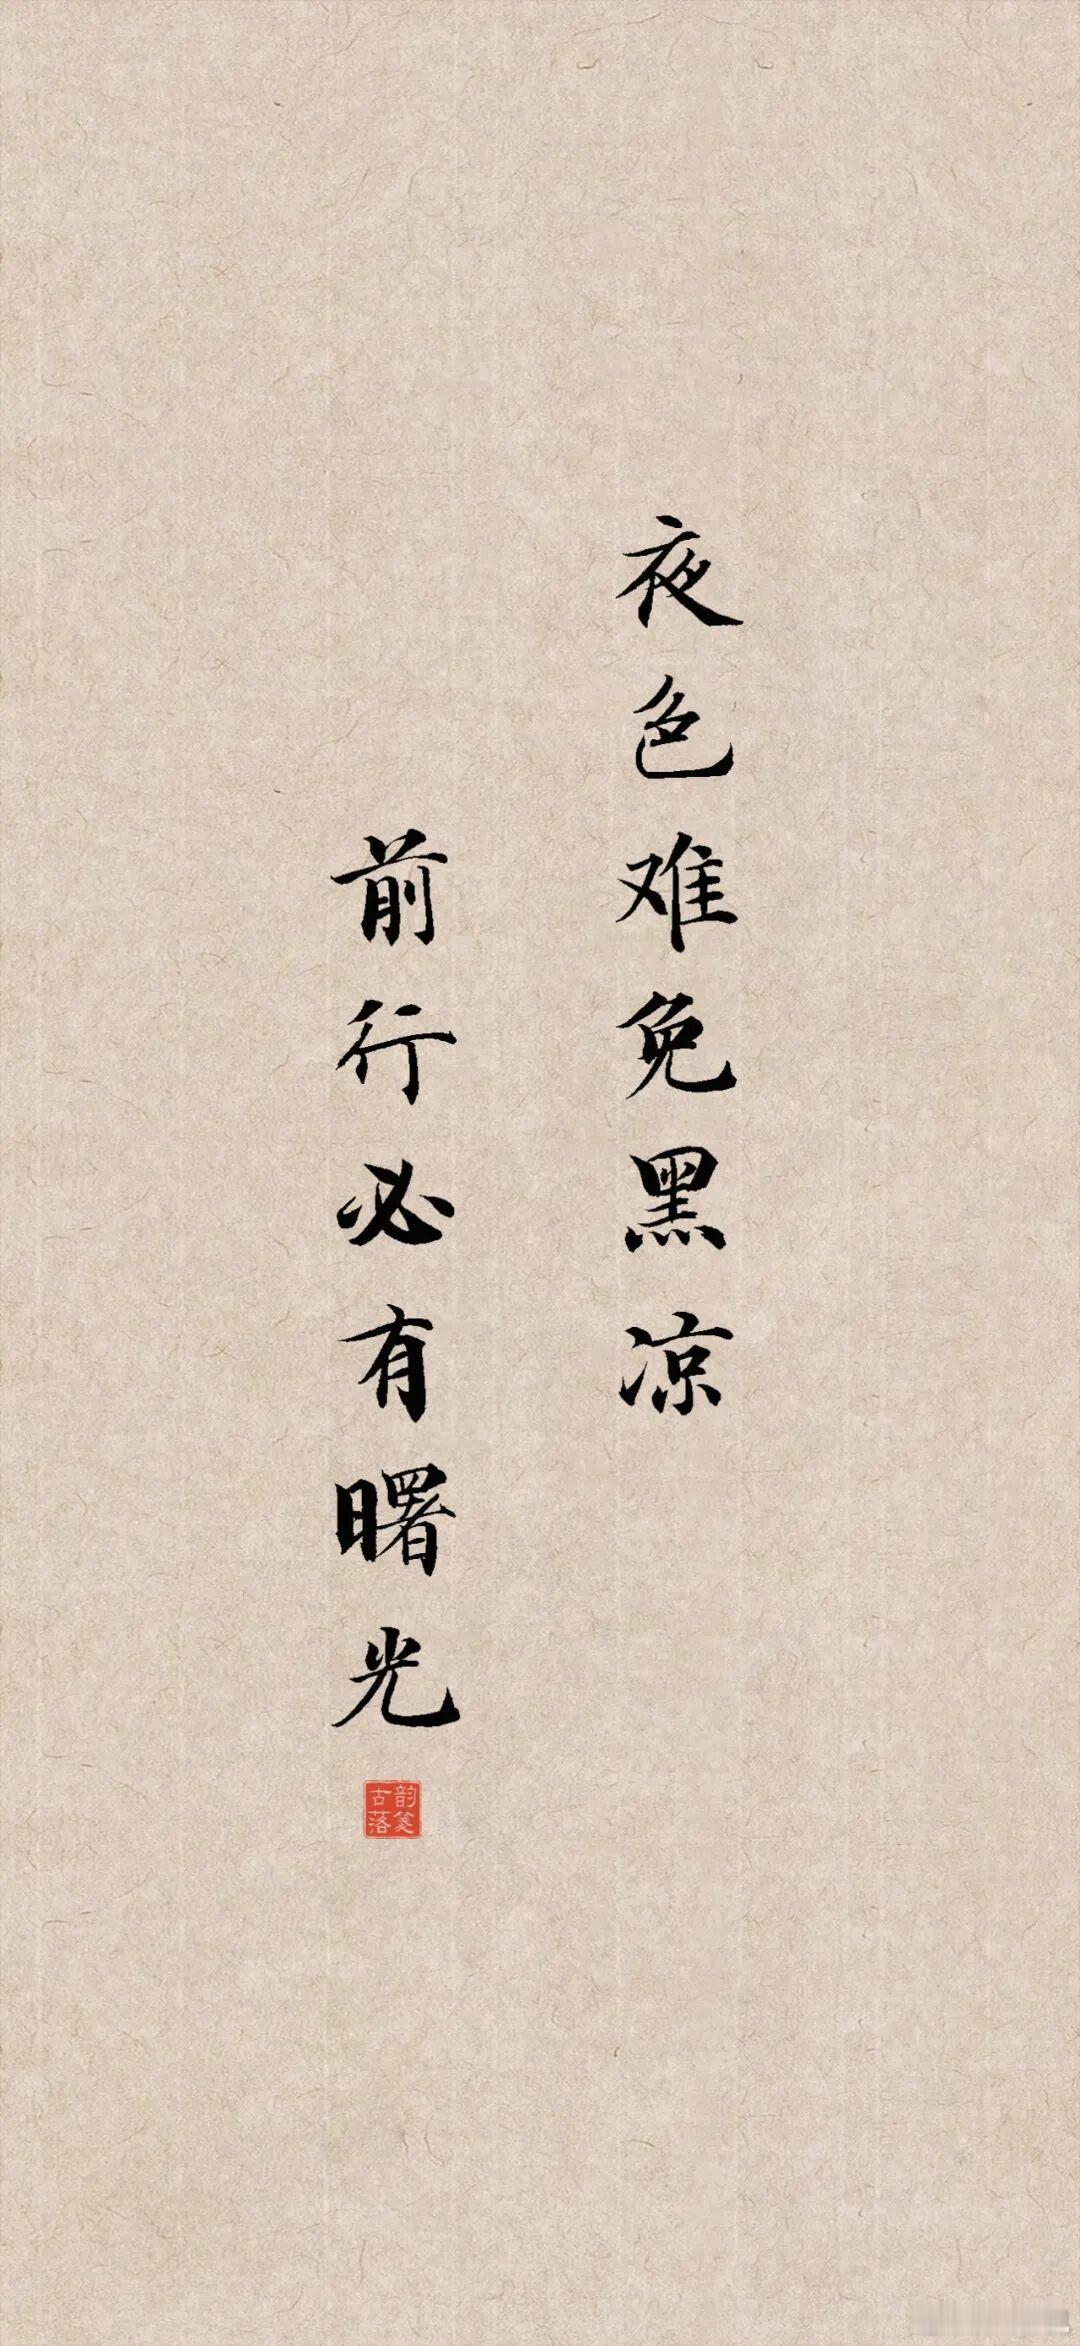 夜色难免黑凉
前行必有曙光
韵笺
古落